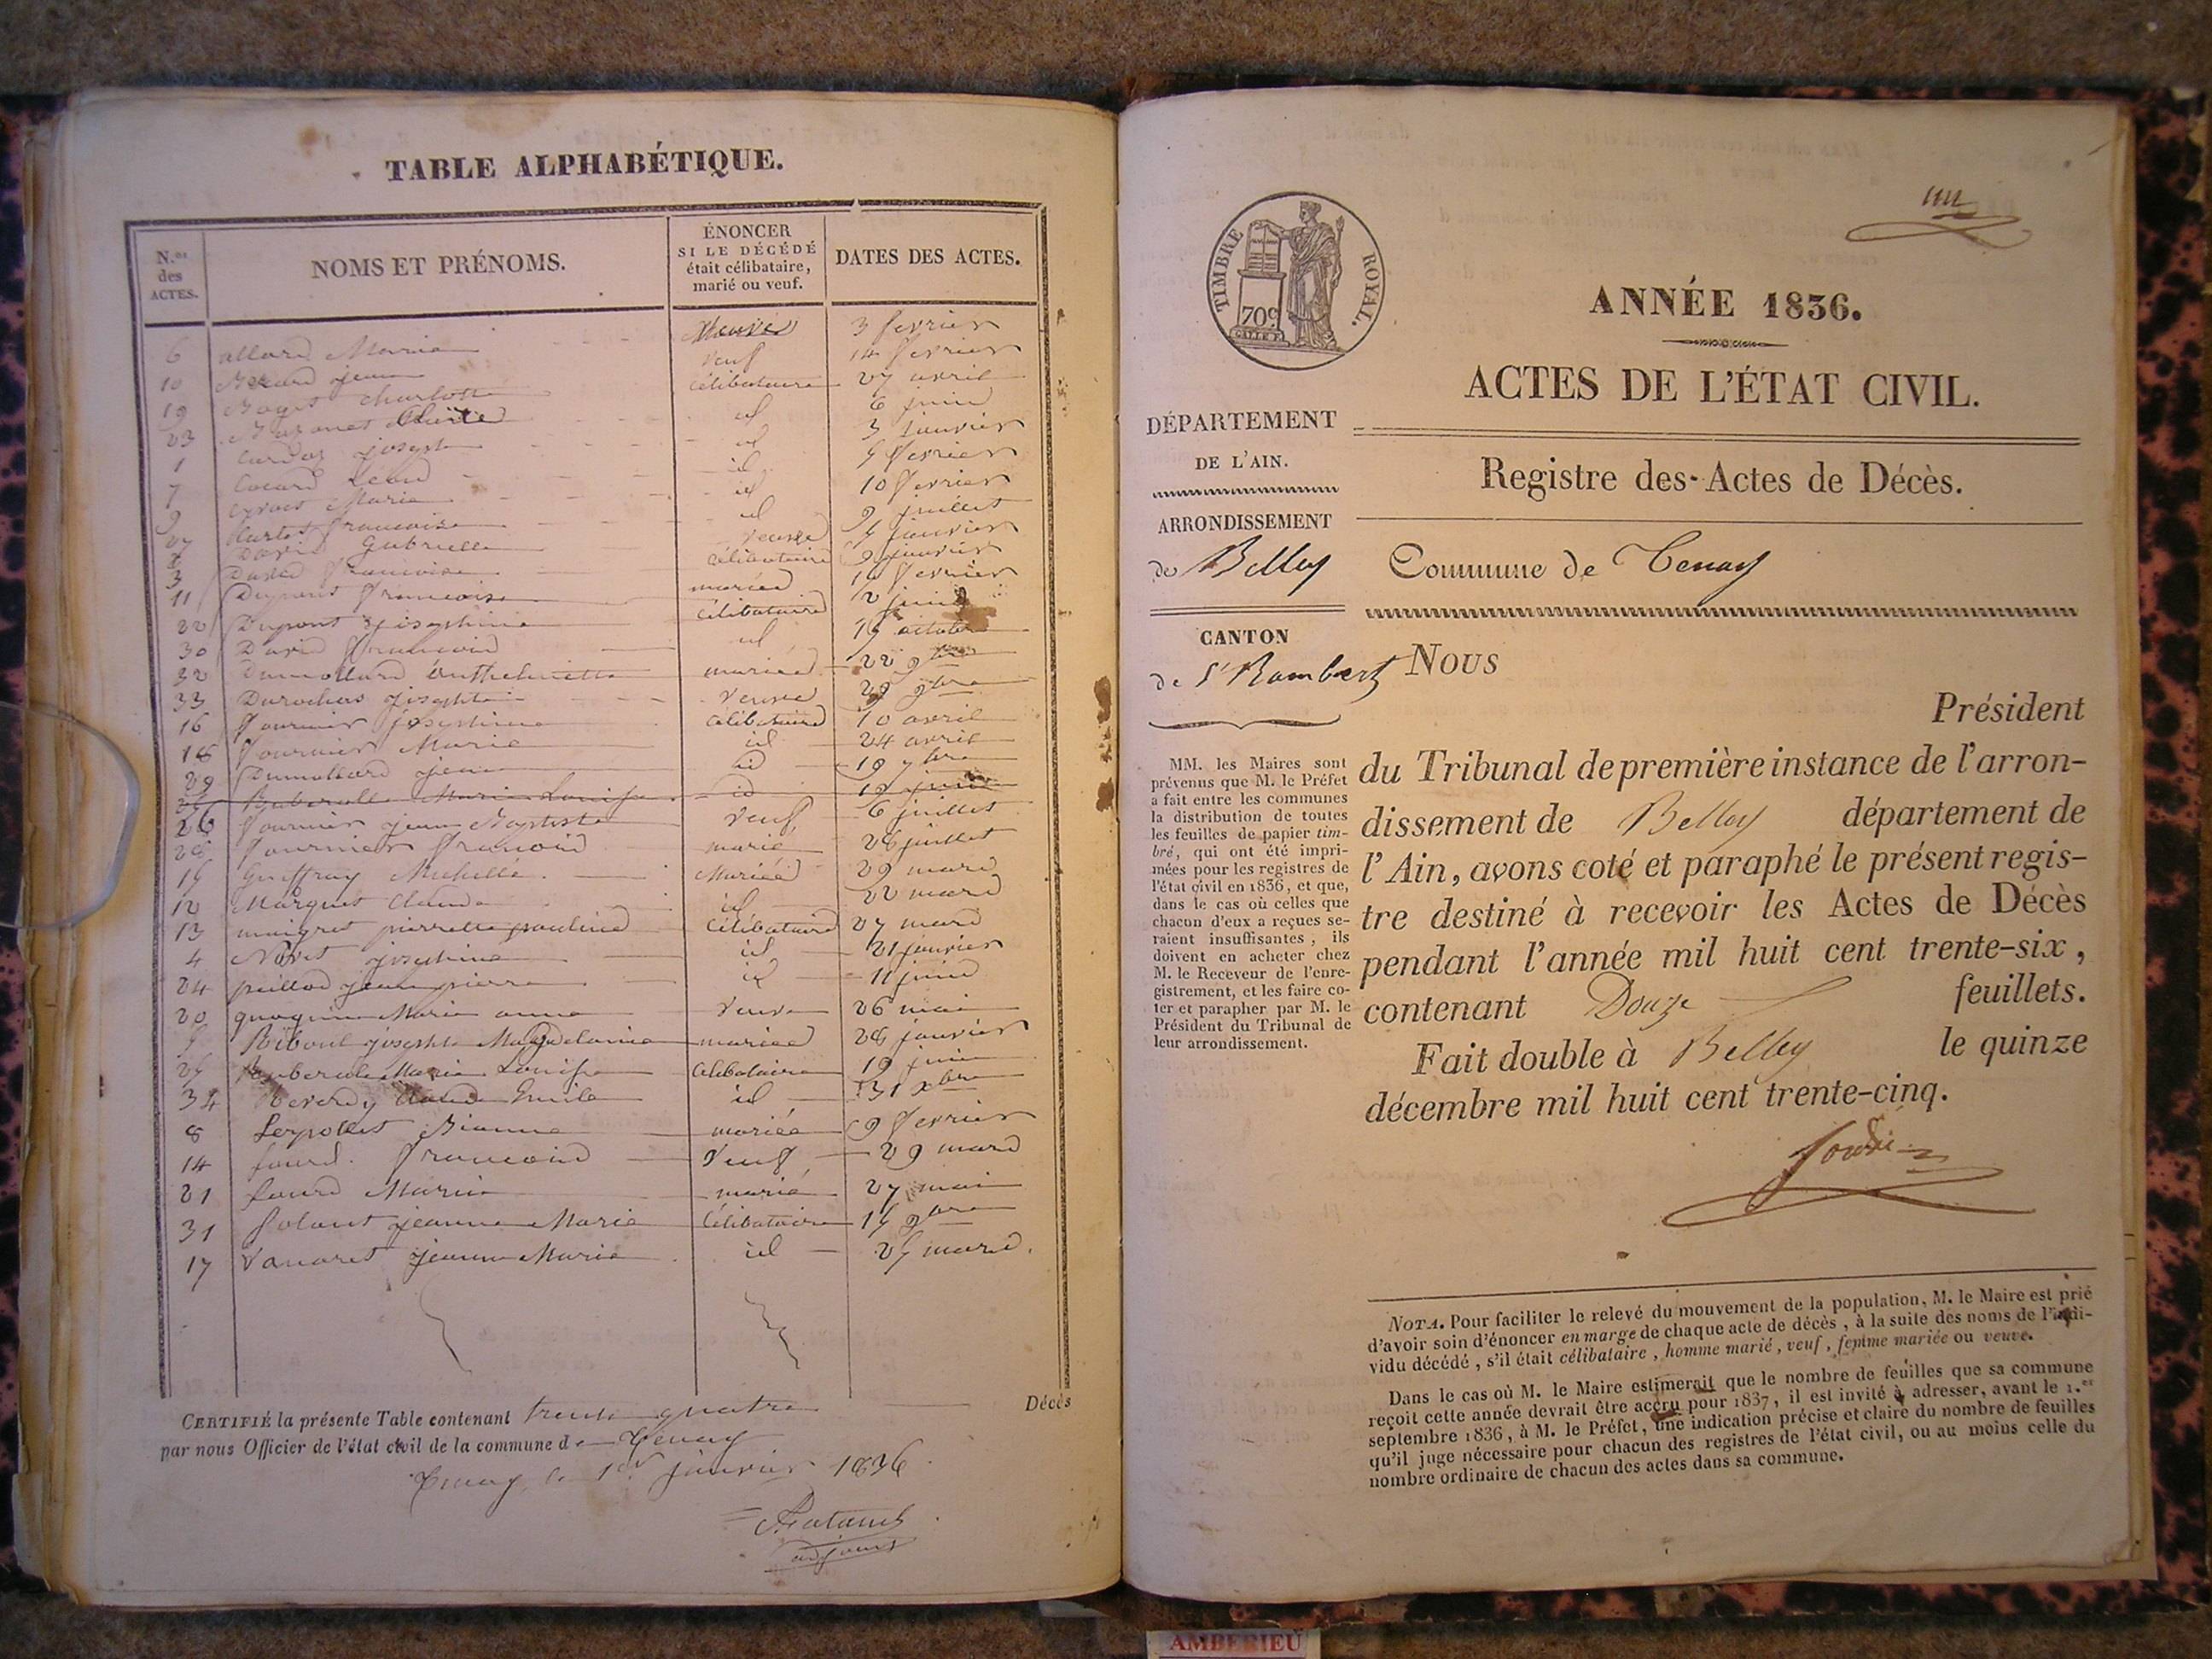 TABLE ALPHABÉTIQUE.
N.os des ACTES.
NOMS ET PRÉNOMS.
ÉNONCER
SI LE DÉCÉDÉ
était célibataire,
marié ou veuf.
DATES DES ACTES.
6 allard Marie veuve 3 fevrier
10 jean veuf 14 fevrier
19 charlotte célibataire 27 avril
23 id 6 juin
1 joseph id 3 janvier
7 id fevrier
9 Marie id 10 fevrier
27 francoise id 9 juillet
David Gabrielle veuve janvier
3 David francoise célibataire 9 janvier
11 Dupont francoise mariée 14 fevrier
22 Dupont josephine célibataire 2 juin
30 David francois id octobre
32 Dumollard mariée 22 9bre
33 Durochas veuve 9bre
16 fournier josephine célibataire 10 avril
18 fournier Marie id 24 avril
29 Dumollard jean id 19 7bre
Marie Louise id 19 juin
26 fournier jean Baptiste veuf 6 juillet
28 fournier francois marié 28 juillet
Guiffray mariée 29 mard
12 Marquis Claude id 22 mard
13 maigret pierrette pauline célibataire 27 mard
4 josephine id 21 janvier
24 jean pierre id 11 juin
20 Marie anne veuve 26 mai
Riboud josephte Magdelaine mariée 28 janvier
Marie Louise célibataire 19 juin
34 Reverdy Claude Emile id 31 xbre
8 mariée 9 fevrier
14 francois veuf 29 mard
21 Marie marié 27 mai
31 jeanne Marie célibataire 9bre
17 Vanaret jeanne Marie id mard.
CERTIFIÉ la présente Table contenant trente quatre Décès
par nous Officier de l'état civil de la commune de Tenay
Tenay le 1er janvier 1836
adjoint
TIMBRE ROYAL.
70c
ANNÉE 1836.
ACTES DE L'ÉTAT CIVIL.
DÉPARTEMENT
DE L'AIN.
Registre des Actes de Décès.
ARRONDISSEMENT
de Belley
Commune de Tenay
CANTON
de St Rambert
MM. les Maires sont
prévenus que M. le Préfet
a fait entre les communes
la distribution de toutes
les feuilles de papier tim-
bré, qui ont été impri-
mées pour les registres de
l'état civil en 1836, et que,
dans le cas où celles que
chacun d'eux a reçues se-
raient insuffisantes, ils
doivent en acheter chez
M. le Receveur de l'enre-
gistrement, et les faire co-
ter et parapher par M. le
Président du Tribunal de
leur arrondissement.
Nous
Président
du Tribunal de première instance de l'arron-
dissement de Belley département de
l'Ain, avons coté et paraphé le présent regis-
tre destiné à recevoir les Actes de Décès
pendant l'année mil huit cent trente-six,
contenant Douze feuillets.
Fait double à Belley le quinze
décembre mil huit cent trente-cinq.
NOTA. Pour faciliter le relevé du mouvement de la population, M. le Maire est prié
d'avoir soin d'énoncer en marge de chaque acte de décès, à la suite des noms de l'indi-
vidu décédé, s'il était célibataire, homme marié, veuf, femme mariée ou veuve.
Dans le cas où M. le Maire estimerait que le nombre de feuilles que sa commune
reçoit cette année devrait être accru pour 1837, il est invité à adresser, avant le 1.er
septembre 1836, à M. le Préfet, une indication précise et claire du nombre de feuilles
qu'il juge nécessaire pour chacun des registres de l'état civil, ou au moins celle du
nombre ordinaire de chacun des actes dans sa commune.
AMBERIEU